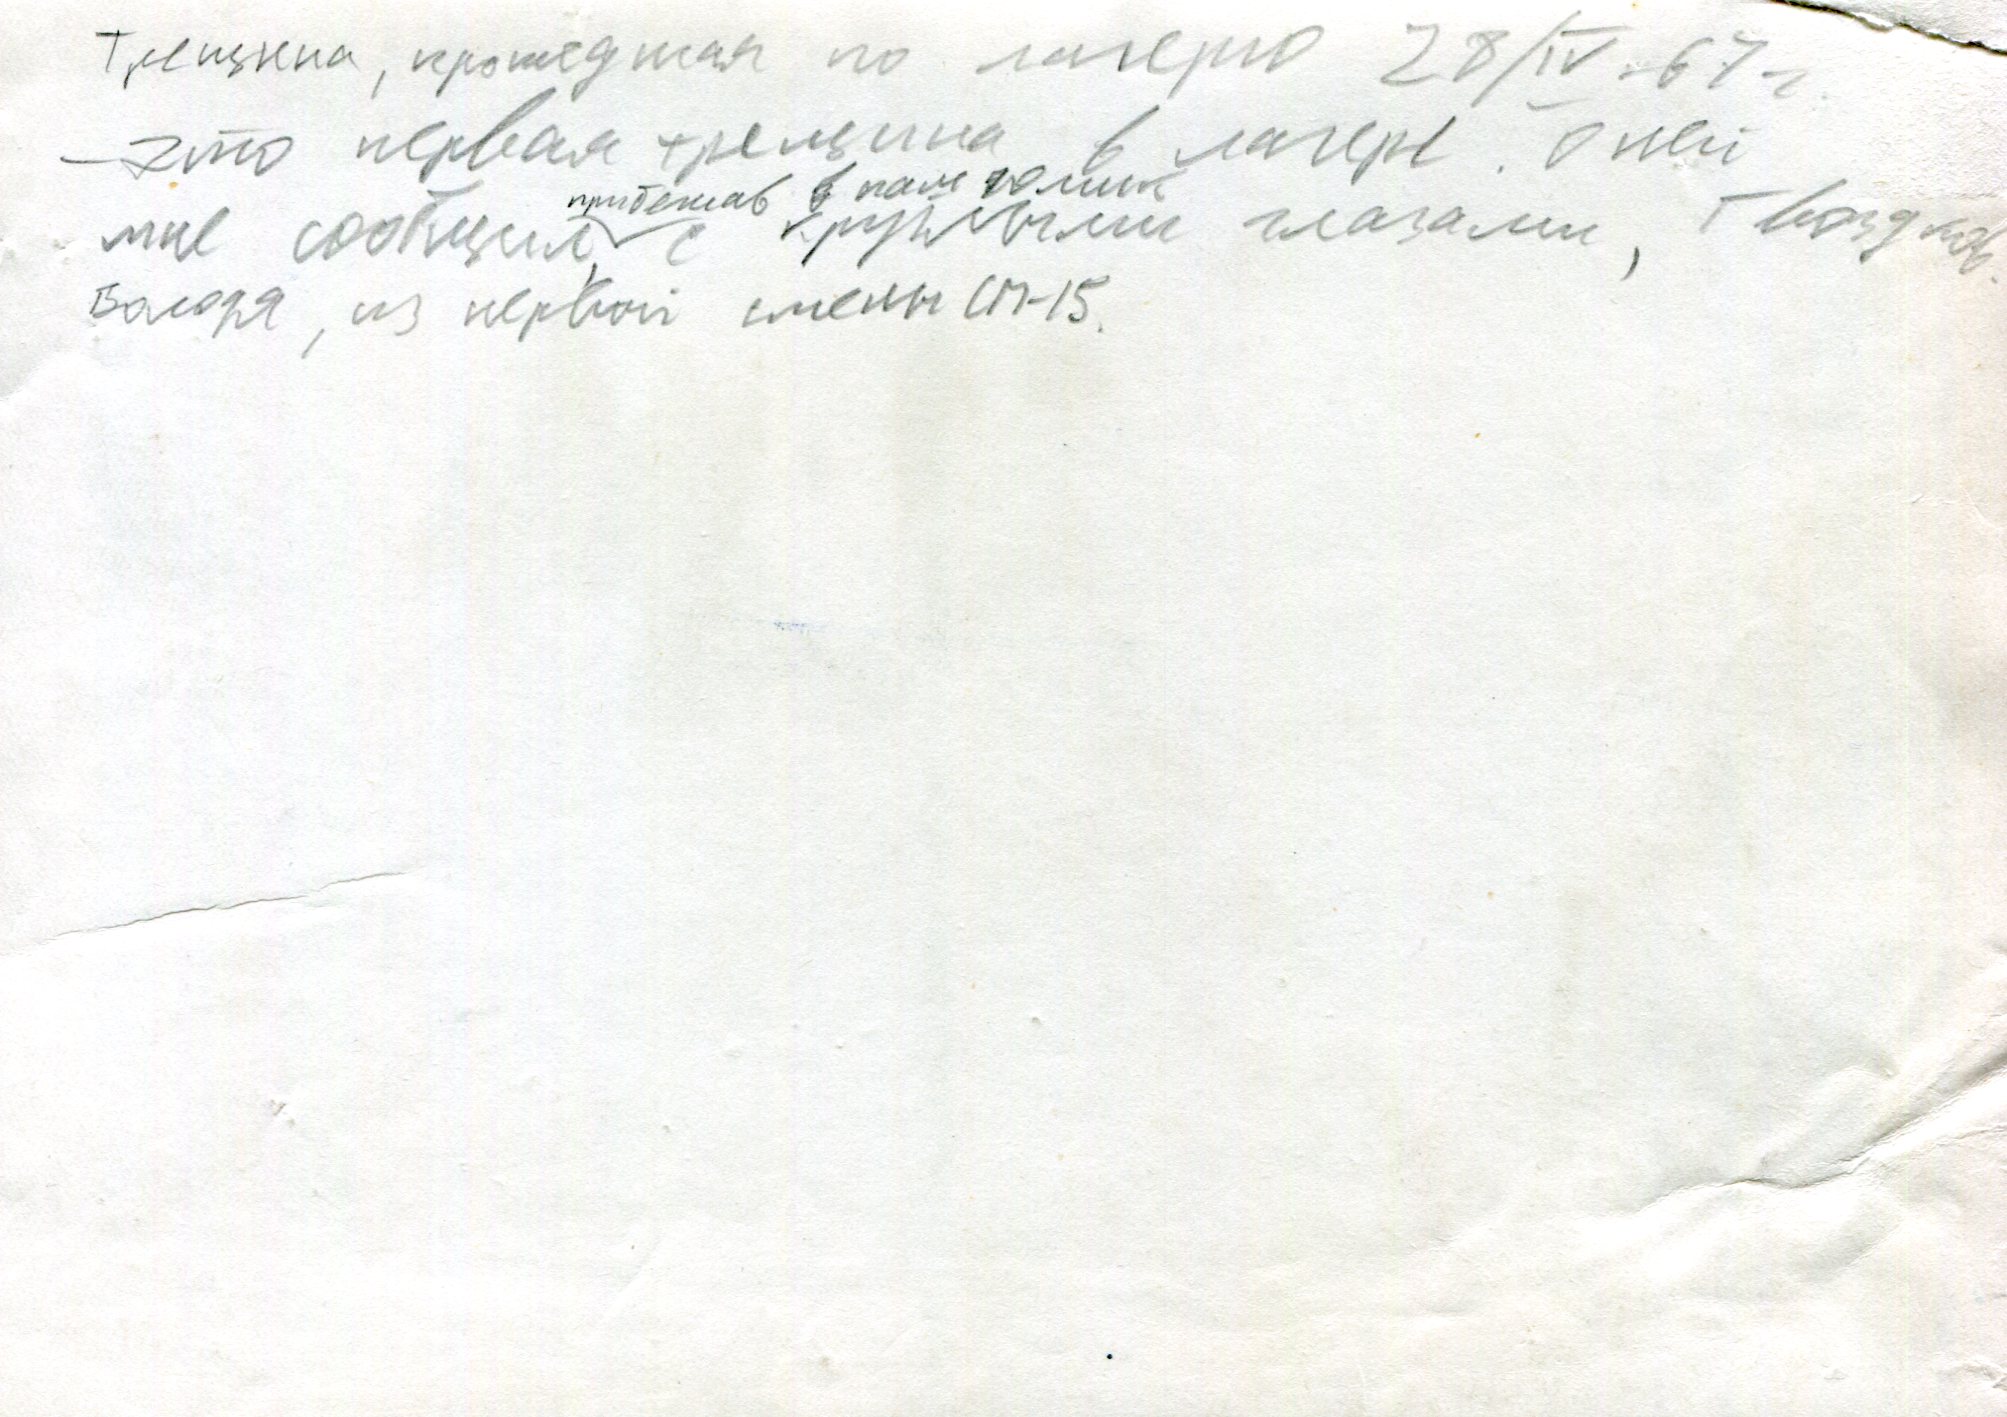 Трещина, прошедшая по лагерю 28/IV-67 г.
– это первая трещина в лагере. О ней
прибежав в наш домик
мне сообщил, с круглыми глазами, Гвоздков
Володя, из первой смены СП-15.